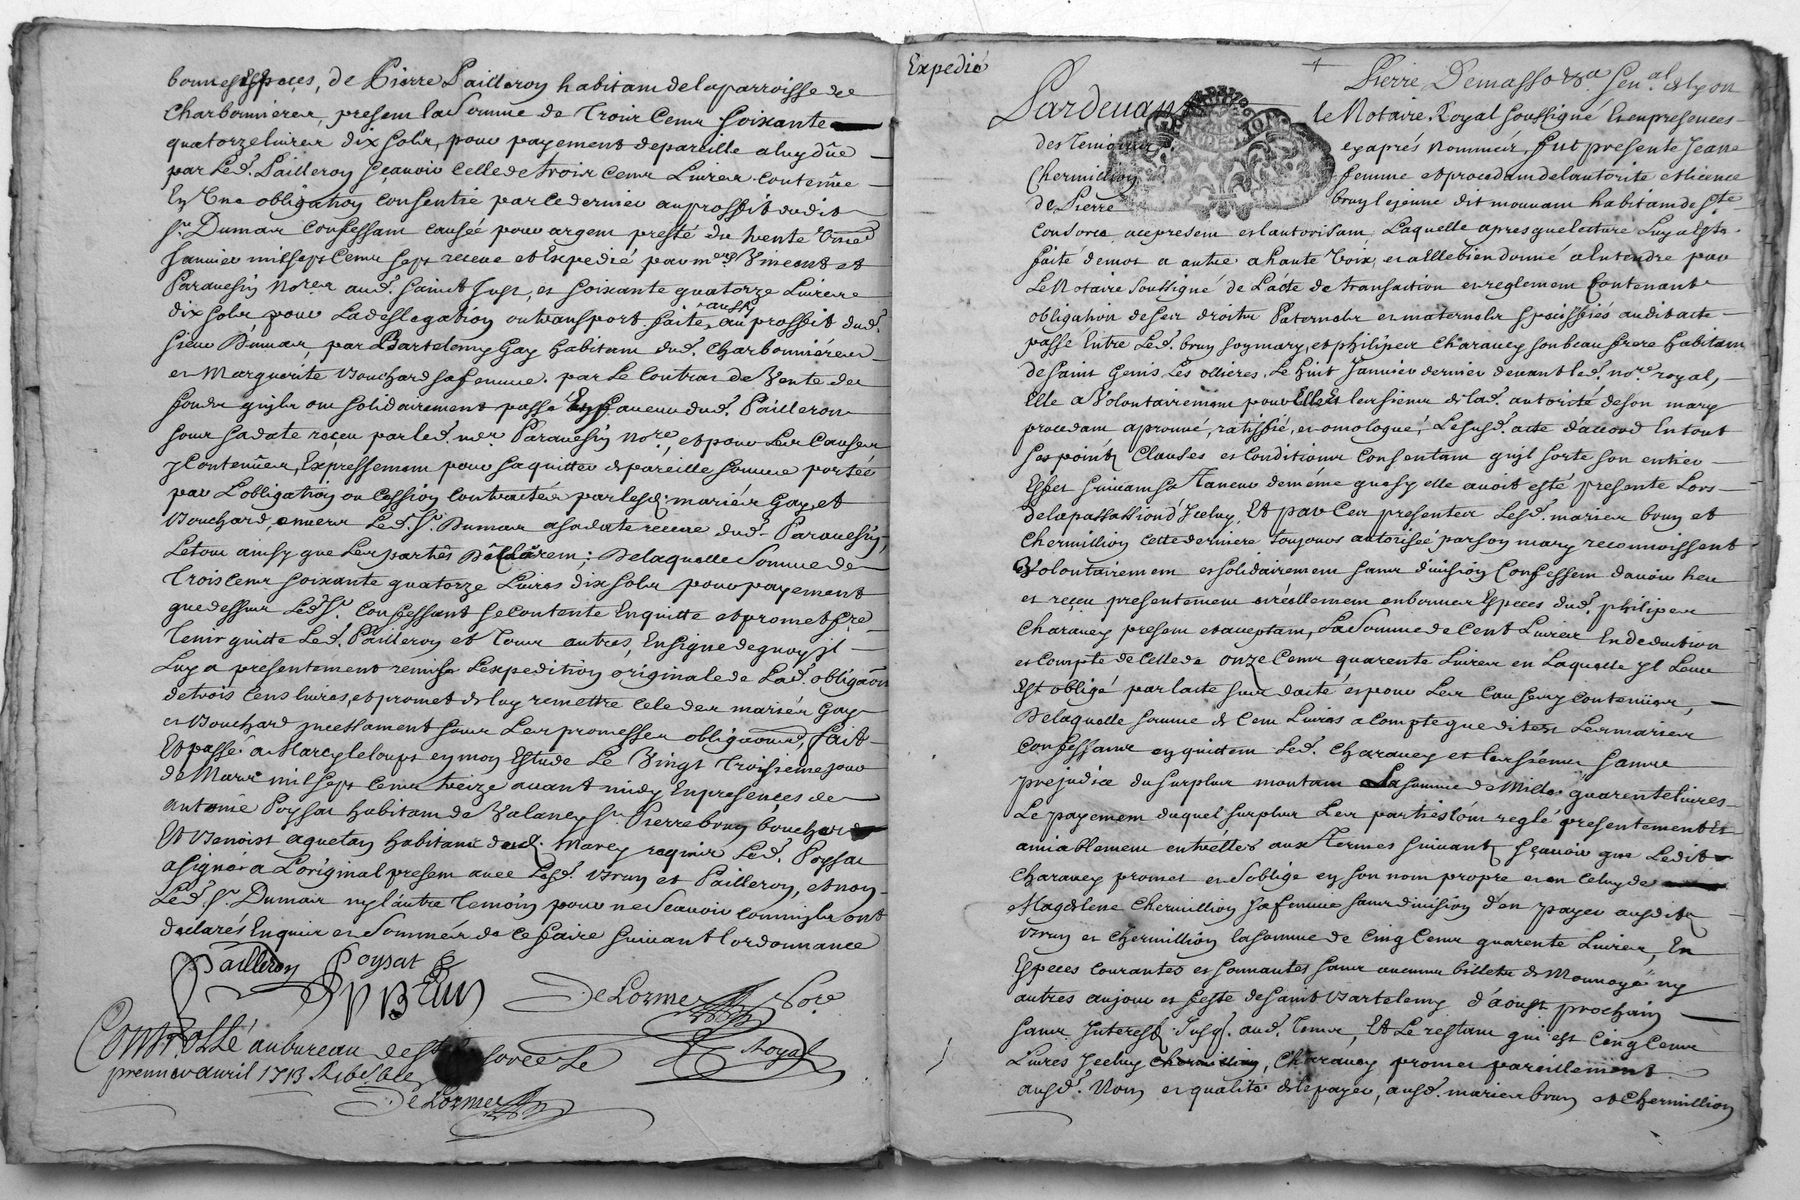 bonnes Espèces, de Pierre Pailleron habitam de la parroisse de
Charbonnieres, presem la Somme de Trois Cens Soixante
quatorze livres dix sols, pour payement de pareille a luy dûe
par Led. Pailleron sçavoir celle de trois cens Livres contenüe
En Une obligation consentie par ce dernier au proffit dudit
Sr. Dumas confessam causée pour argem presté du trente Une
Janvier mil sept cens sept receue et Expedié par mes Vincent et
Paravesin Nores aud. Saint Just, et soixante quatorze Livres
dix sols pour La deslegation ou transport faite aussy au proffit dud.
Sieur Dumas, par Bartelemy Gay habitam dud. Charbonniéres
et Marguerite Bouchard sa femme. par Le Contrat de Vente des
fonds qu'ils ont solidairement passé En faveur dud. Pailleron
sour sa date reçeu par led. me Paravesin Nore, et pour Les Causes
y Contenües, Expressement pour s'aquitter de pareille somme portée
par L'obligation ou cession contractée par lesd. mariés Gay et
Bouchard, envers Led. Sr. Dumas a sa date receue dud. Paravesin,
Le tout ainsy que Les partiés Déclarem; De laquelle Somme de
Trois cens soixante quatorze Livres dix sols pour payement
que dessus Led. Sr. Confessant se contente Enquitte et promet fre
Tenir quitte Led. Pailleron et Tous autres, En signe de quoy jl
Luy a presentement remise L'expedition originale de Lad. obligaon
de trois Cens livres, et promet de luy remettre cele des mariés Gay
et Bouchard jncessament sour Les promesses obligaons, fait
Et passé a Marcy le loups en mon Estude Le Vingt Troisieme jour
de Mars mil sept cens treize avant midy En presences de
antoine Poysat habitam de Valaney Sr Pierre brun bouchard
Et Benoist aquetan habitans dud. Marcy requis Led. Poysat
a signé a L'original presem avec Lesd. Brun et Pailleron, et non
Led. Sr. Dumas ny l'autre Temoin pour ne Scavoir comme jls ont
declarés Enquis et Sommés de ce faire suivant l'ordonnance
Pailleron Poysat
P Brun De Lorme Nore
Royal
Controllé au bureau de
premier avril 1713
De Lorme
Expedié
Pierre Demasso
Pardevant le Notaire Royal soussigné Et en presences
des Temoins cy aprés Nommés, fut presente Jeane
Chermillion femme et procedam de l'autorité et licence
de Pierre brun le jeune dit mouvam habitam de Ste
Consorce, acepresem et l'autorisam, Laquelle apres que lecture Luy a esté
faite de mot a autre a haute Voix, et a Elle bien donné a Entendre par
Le Notaire soussigné de L'acte de transaction et reglement Contenant
obligation de ses droits Paternels et maternels speciffiés audit acte
passé Entre Led. brun son mary, et philiper Charavey son beau frere habitam
de saint Genis Les ollières, Le huit Janvier dernier devant led. nore royal,
Elle a Volontairement pour Elle Et les siens de lad. autorité de son mary
procedam aprouvé, ratiffié, et omologué, Le susd. acte d'acord En tout
ses points Clauses et Conditions Consentam qu'jl sorte son entier
Effet suivam sa Teneur de méme que sy elle avoit esté presente Lors
de la passassion d'Jceluy, Et par Ces presentes Lesd. mariés brun et
Chermillion cette derniere toujours autorisée par son mary reconnoissent
Volontairement et solidairement sans division Confessem d'avoir heu
et reçeu presentement et réellement en bonnes Especes dud. philiper
Charavey presem et aceptam, La Somme de Cent Livres En deduction
et Compte de Celle de onze Cens quarente Livres en Laquelle jl Leur
Est obligé par l'acte sus daté et pour Les Causes y contenües,
De laquelle somme de Cens Livres a compte que dites Les mariés
Confessans en quittem Led. Charavey et les siens sans
prejudice du surplus montam La somme de Mille quarente livres
Le payement duquel surplus Les parties l'ont reglé presentement Et
amiablement entr'elles aux Termes suivants sçavoir que Ledit
Charavey promet et S'oblige en son nom propre et en Celuy de
Magdelene Chermillion sa femme sans division d'en payer ausdits
Brun et Chermillion la somme de Cinq Cens quarente Livres, En
Especes courantes et sonnantes sans aucuns billets de Monnoye ny
autres au jour et feste de saint Bartelemy d'aoust prochain
Sans Interest Jusq. aud. Tems, Et Le restam qui est Cinq Cens
Livres Jceluy Charavey promet pareillement
ausd. Nom et qualité de le payer, ausd. mariés brun et Chermillion